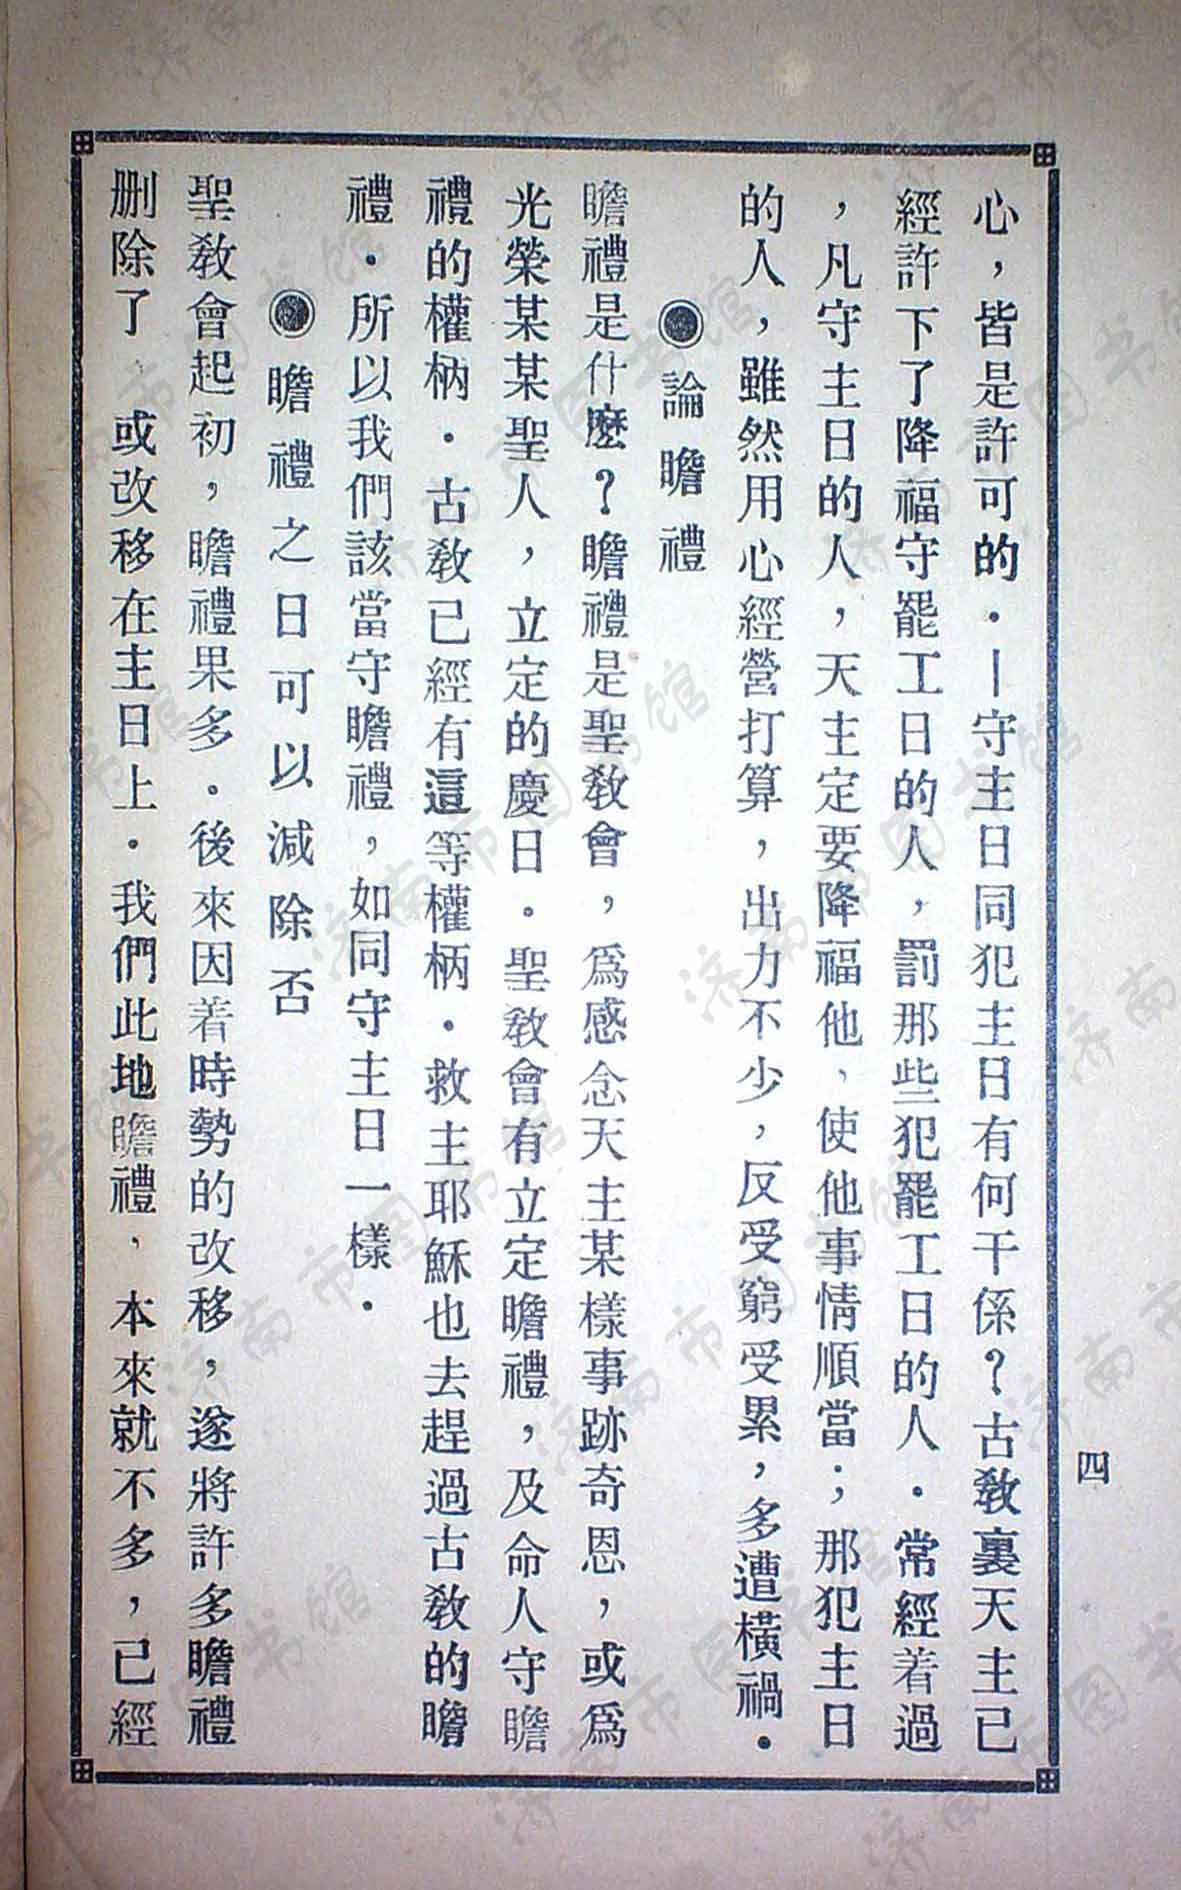 心，皆是許可的．—守主日同犯主日有何干係？古敎裏天主已
經許下了降福守罷工日的人，罰那些犯罷工日的人．常經着過
，凡守主日的人，天主定要降福他，使他事情順當；那犯主日
的人，雖然用心經營打算，出力不少，反受窮受累，多遭橫禍．
◉論瞻禮
瞻禮是什麼？瞻禮是聖敎會，爲感念天主某樣事跡奇恩，或爲
光榮某某聖人，立定的慶日。聖敎會有立定瞻禮，及命人守瞻
禮的權柄．古敎已經有這等權柄．救主耶穌也去趕過古敎的瞻
禮．所以我們該當守瞻禮，如同守主日一樣．
◉瞻禮之日可以減除否
聖敎會起初，瞻禮果多．後來因着時勢的改移，遂將許多瞻禮
删除了　或改移在主日上．我們此地瞻禮，本來就不多，已經
四
济南市图书馆